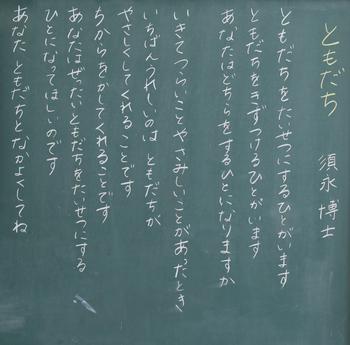 ともだち 須永博士
ともだちをたいせつにするひとがいます
ともだちをきずつけるひとがいます
あなたはどちらをするひとになりますか
いきてつらいことやさみしいことがあったとき
いちばんうれしいのは ともだちが
やさしくしてくれることです
ちからをかしてくれることです
あなたはぜったいともだちをたいせつにする
ひとになってほしいのです
あなた ともだちとなかよくしてね